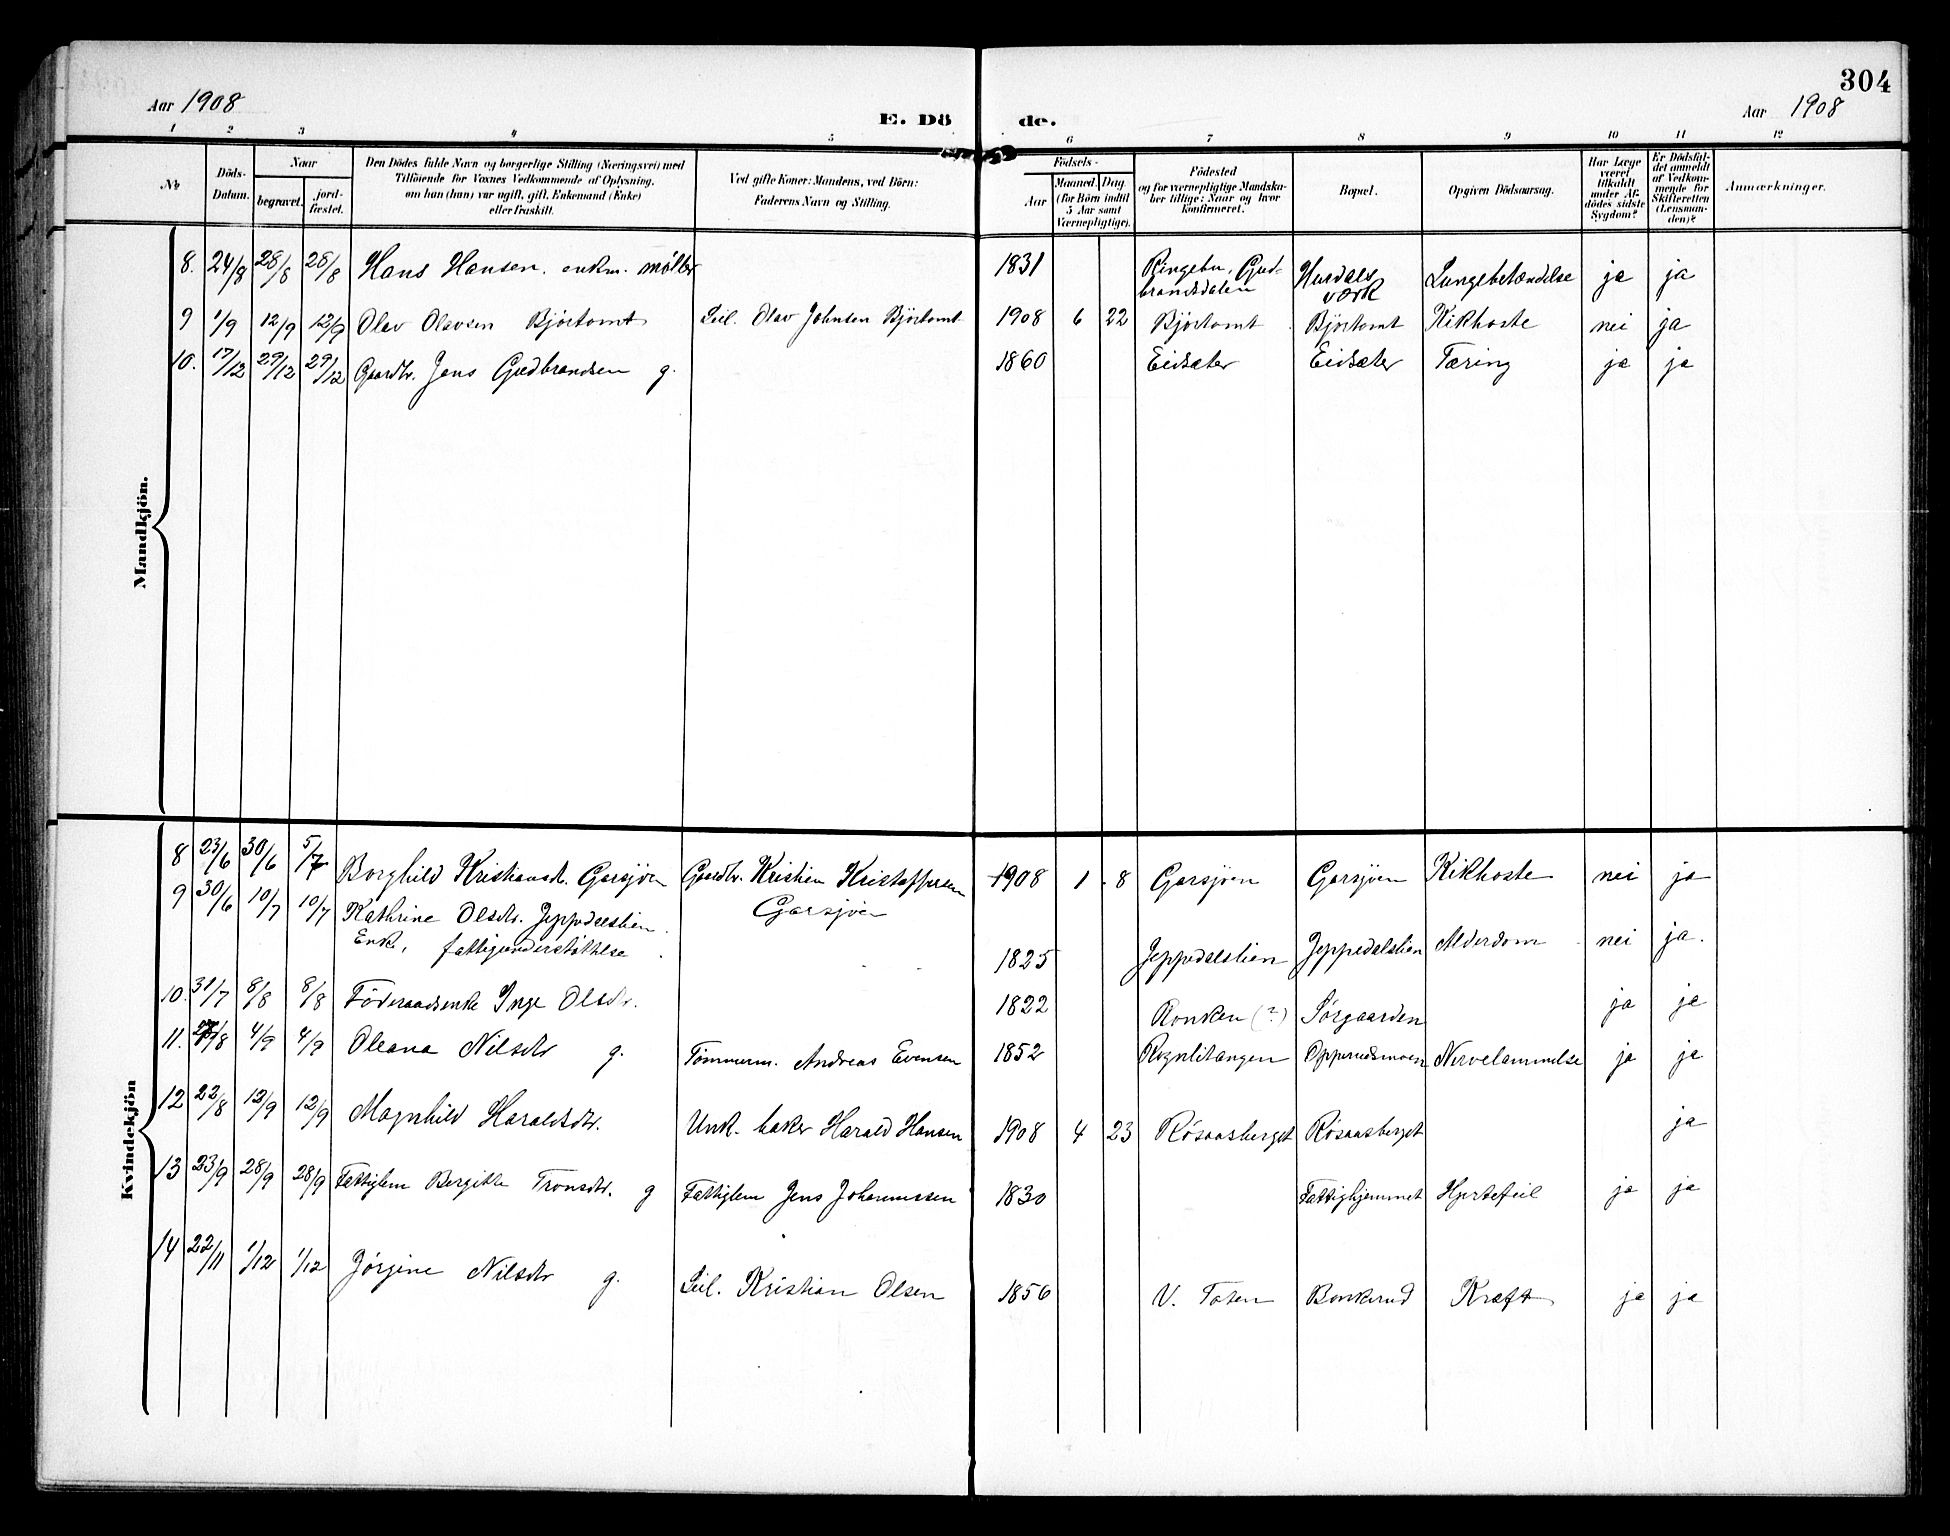 304
Aar 1908
E. Dö
de.
Aar 1908
1 2 3 4 5 6 7 8 9 10 11 12
No
Döds-
Datum.
Naar
begravet.
jord-
fæstet.
Den Dödes fulde Navn og borgerlige Stilling (Næringsvei) med
Tilföiende for Voxnes Vedkommende af Oplysning.
om han (hun) var ugift, gift, Enkemand (Enke)
eller fraskilt.
Ved gifte Koner: Mandens, ved Börn:
Faderens Navn og Stilling.
Födsels-
Aar
Maaned. Dag
(for Börn indtil
5 Aar samt
Værnepligtige).
Födested
og for værnepligtige Mandska-
ber tillige: Naar og hvor
konfirmeret.
Bopæl.
Opgiven Dödsaarsag.
Har Læge
været
tilkaldt
under Af-
dödes sidste
Sygdom?
Er Dödsfal-
det anmeldt
af Vedkom-
mende for
Skifteretten
(Lensman-
den)?
Anmærkninger.
Mandkjön.
8. 24/8 28/8 28/8 Hans Hansen. enkm. møller 1831 Ringebu, Gud-
brandsdalen Hurdals
værk Lungebetændelse ja ja
9 1/9 12/9 12/9 Olav Olavsen Bjørtomt Seil. Olav Johnsen Bjørtomt 1908 6 22 Bjørtomt Bjørtomt Kikhoste nei ja
10. 17/12 29/12 29/12 Gaardbr. Jens Gudbrandsen g. 1860 Eidsæter Eidsæter Tæring ja ja
Kvindekjön
8 23/6 30/6 5/7 Borghild Kristiansdr. Garsjøen Gaardbr. Kristian Kristoffersen
Garsjøen 1908 1 8 Garsjøen Garsjøen Kikhoste nei ja
9 30/6 10/7 10/7 Kathrine Olsdr. Jeppedalslien
Enke, fattigunderstøttelse 1825 Jeppedalslien Jeppedalslien Alderdom nei ja.
10. 31/7 8/8 8/8 Föderaadsenke Inge Olsdr. 1822 Ronken (?) Sørgaarden ja ja
11. 4/9 4/9 Oleana Nilsdr g. Tømmerm. Andreas Evensen 1852 Rognlitangen Opperudsmoen Nervelammelse ja ja
12 22/8 12/9 12/9 Magnhild Haraldsdtr. Unk. baker Harald Hansen 1908 4 23 Røsaasberget Røsaasberget ja
13 23/9 28/9 28/9 Fattiglem Bergitte Tronsdtr. g Fattiglem Jens Johannessen 1830 Fattighjemmet Hjertefeil ja ja
14 22/11 1/12 1/12 Jørgine Nilsdr g. Seil. Kristian Olsen 1856 V. Toten Bonkerud Kræft ja ja